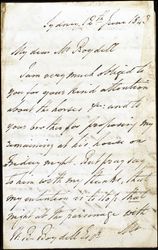 Sydney 12th June 1843
My dear Mr Boydell
I am very much obliged to
you for your kind attention
about the horses &c: and to
your brother for proposing my
remaining at his house on
Friday next. But pray say
to him with my thanks, that
my intention is to stop that
night at the Parsonage with
W. B. Boydell Esqr. Mr